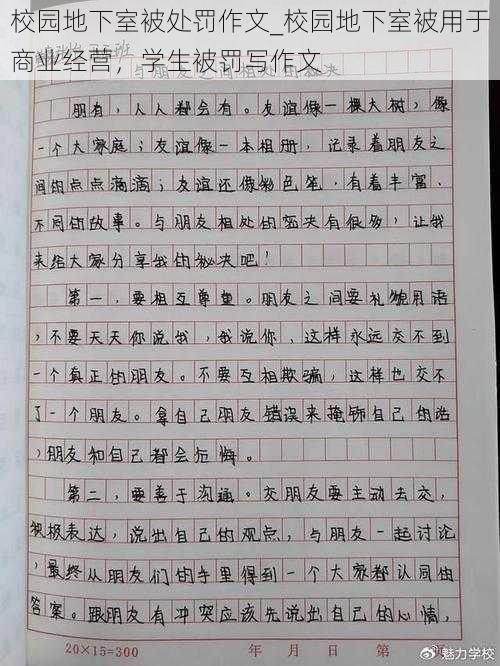 校园地下室被处罚作文_校园地下室被用于
商业经营，学生被罚写作文
班
与朋友相处的秘决
朋有，人人都会有。友谊像一棵大树，像
一个大家庭；友谊像一本相册，记录着朋友之
间的点点滴滴；友谊还像彩色笔，有着丰富、
不同的故事。与朋友相处的密决有很多，让我
来给大家分享我的秘决吧！
第一，要相互尊重。朋友之间要礼貌用语
，不要天天你说我，我说你，这样永远交不到
一个真正的朋友。不要互相欺骗，这样也交不
了一个朋友。拿自己朋友错误来掩饰自己的话
，朋友和自己都会后悔。
第二，要善于沟通。交朋友要主动去交，
积极表达，说出自己的观点，与朋友一起讨论
，最终从朋友们的手里得到一个大家都认同的
答案。跟朋友有冲突应该先说出自己的心情，
20×15=300 年 月 日 第
魅力学校